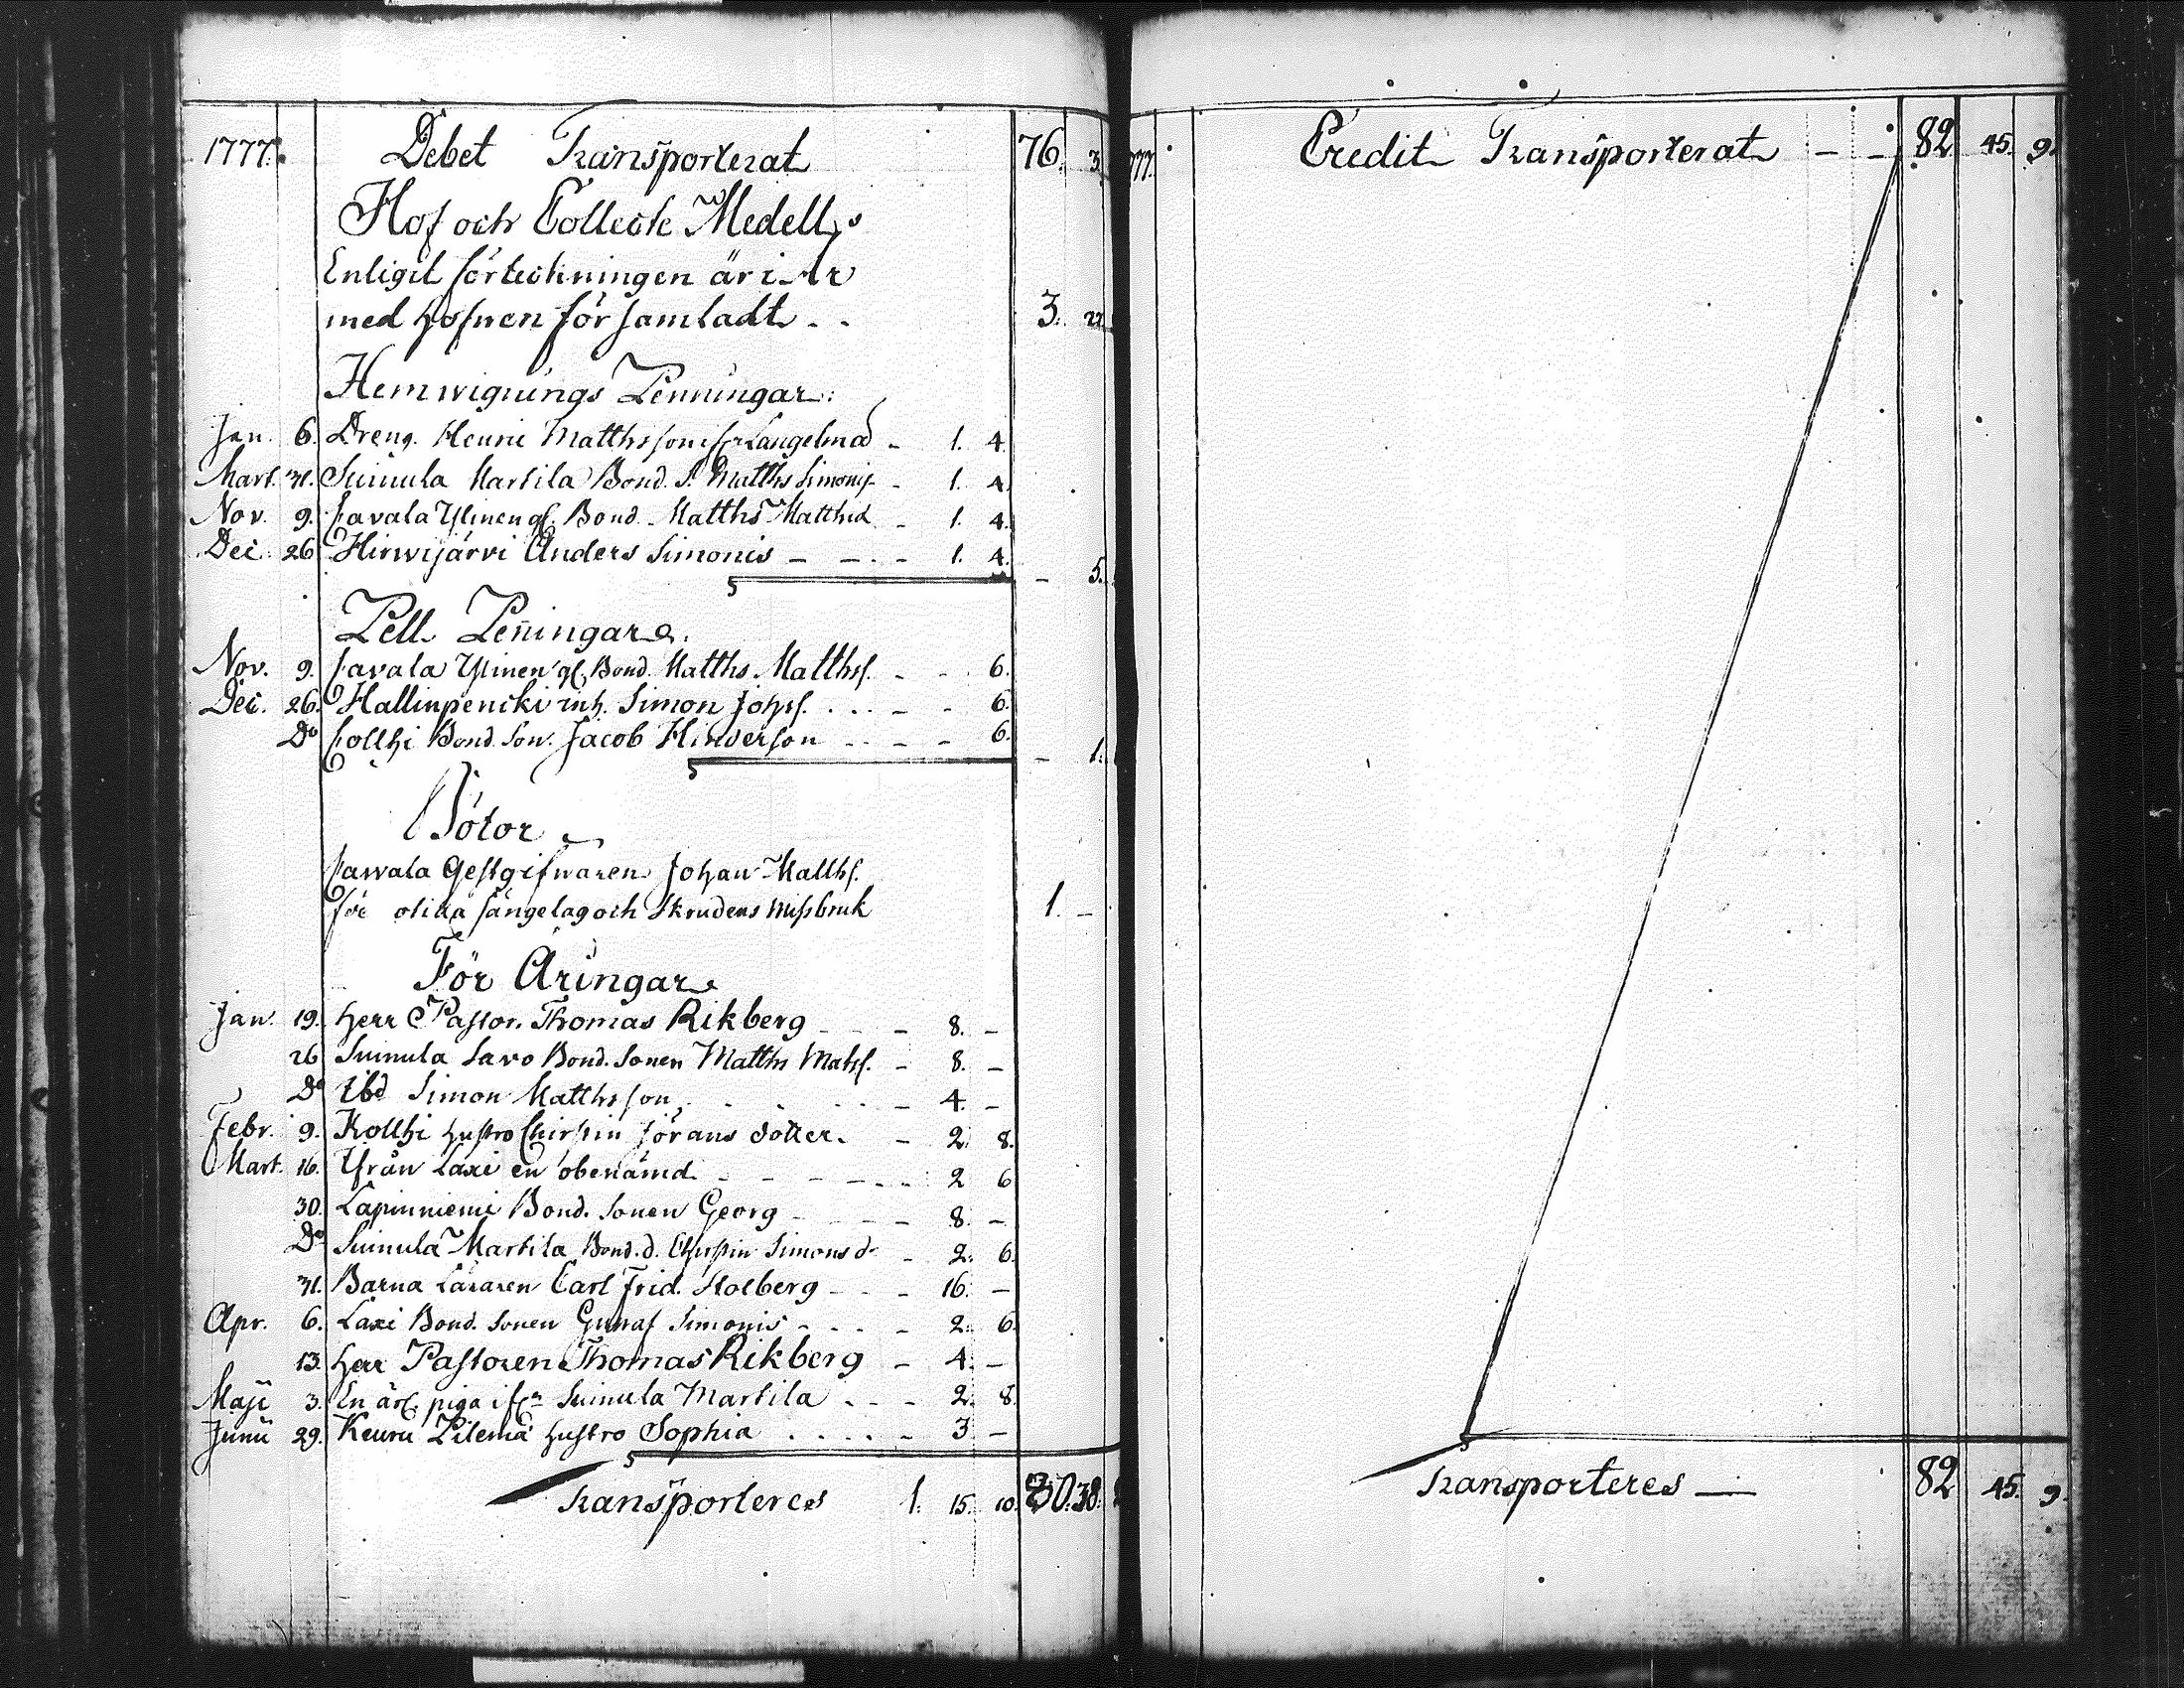 1777. Debet Transporterat 76. 3.
Hof och Collecte Medell,s
Enligit förteckningen är i År
med Hofwen församladt - - 3. 22
Hemwignings Penningar:
Jan. 6. Dreng. Henric Matthsson ifr. Längelmä - 1. 4.
Mart. 31. Suinula Martila Bond. S. Matths Simonis - 1. 4.
Nov. 9. Savala Ylinen Bond. Matths Matthiæ - 1. 4.
Dec. 26 Hirwijärvi Anders Simonis - - - - 1. 4.
- 5.
Pell Peñingar.
Nov. 9. Savala Ylinen Bond. Matths Matthss. - - 6.
Dec. 26. Hallinpenicki inh. Simon Johss. . . . - - 6.
Do Collhi Bond. Son. Jacob Hinderson - - - - 6.
- 1.
Böter
Sawala Gestgifwaren Johan Matths.
för olika sängelag och Skrudens Missbruk 1. -
För Äringar
Jan. 19. Herr Pastor. Thomas Rikberg - - - 8. -
26 Suinula Savo Bond. Sonen Matths Mats. - 8. -
Do Ibd Simon Matthsson . . . . . - 4. -
Febr. 9. Kollhi hustro Chirstin Jörans dotter. - 2. 8.
Mart. 16. Ifrån Laxi en obenämd - - - - - - 2 6
30. Lapinniemi Bond. Sonen Georg - - - - 8. -
Do Suinula Martila Bond. d. Chirstin Simons d. - 2. 6.
31. Barna Läraren Carl Frid. Holberg - - - 16. -
Apr. 6. Laxi Bond. Sonen Gustaf Simonis - - - 2. 6.
13. Herr Pastoren Thomas Rikberg - 4. -
Maji 3. En ärl. piga ifrn Suinula Martila . - - 2. 8.
Junii 29. Keuru Pilemä hustro Sophia . . . . - 3 -
Transporteres 1. 15. 10. 80. 38.
1777. Credit Transporterat - - 82 45. 9.
Transporteres — 82 45. 9.